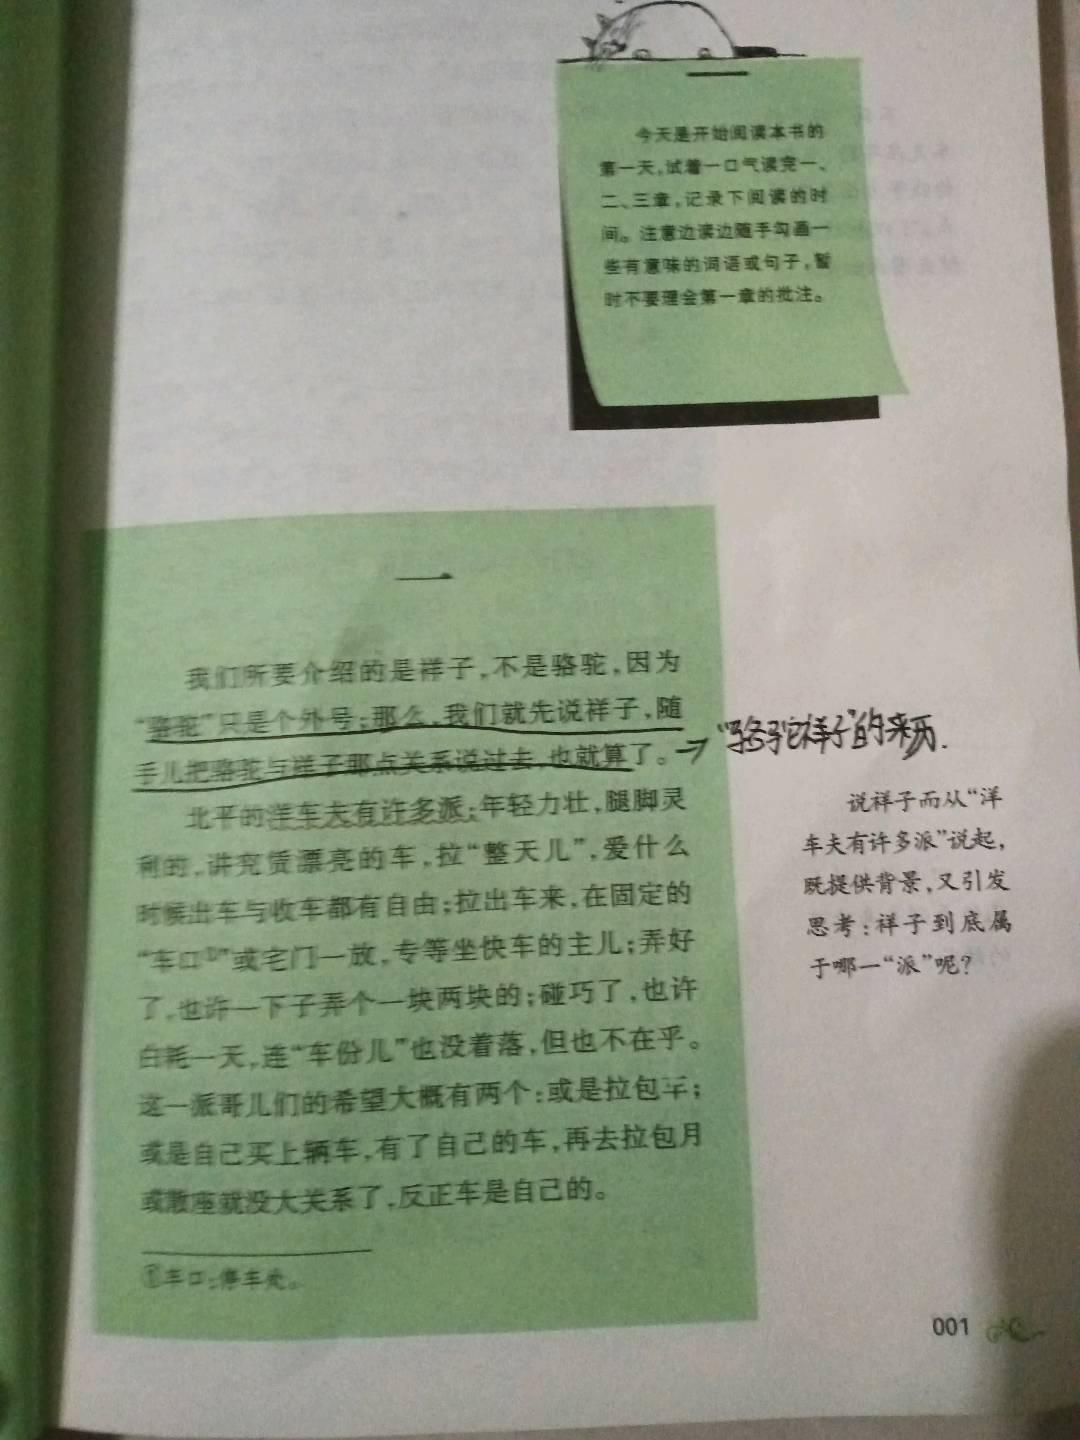 今天是开始阅读本书的
第一天,试着一口气读完一、
二、三章,记录下阅读的时
间。注意边读边随手勾画一
些有意味的词语或句子,暂
时不要理会第一章的批注。
一
我们所要介绍的是祥子,不是骆驼,因为
“骆驼”只是个外号;那么,我们就先说祥子,随
手儿把骆驼与祥子那点关系说过去,也就算了。
“骆驼祥子”的来历.
北平的洋车夫有许多派:年轻力壮,腿脚灵
利的,讲究赁漂亮的车,拉“整天儿”,爱什么
时候出车与收车都有自由;拉出车来,在固定的
“车口①”或宅门一放,专等坐快车的主儿;弄好
了,也许一下子弄个一块两块的;碰巧了,也许
白耗一天,连“车份儿”也没着落,但也不在乎。
这一派哥儿们的希望大概有两个:或是拉包车;
或是自己买上辆车,有了自己的车,再去拉包月
或散座就没大关系了,反正车是自己的。
①车口:停车处。
说祥子而从“洋
车夫有许多派”说起,
既提供背景,又引发
思考:祥子到底属
于哪一“派”呢?
001